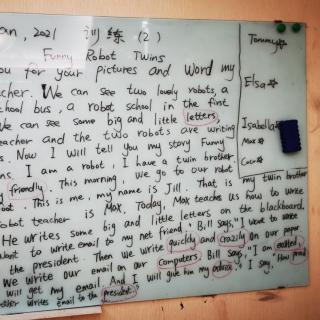 an, 2021 训练 (2)
Funny Robot Twins
ou for your pictures and word my
cher. We can see two lovely robots, a
chool bus, a robot school in the first
We can see some big and little letters,
teacher and the two robots are writing
s. Now I will tell you my story Funny
ns. I am a robot, I have a twin brother
friendly. This morning, we go to our robot
ool. This is me, my name is Jill. That is my twin brother
Robot teacher is Max. Today, Max teachs us how to write
He writes some big and little letters on the blackboard.
want to write email to my net friend,' Bill says, "I want to write
the president. Then we write quickly and crazily on our paper
We write our email on our computers Bill says, "I am excited
will get my email. And I will give him my advice. I say, "How proud
writes email to the president.
Tommy☆
Elsa☆
Isabella☆
Max☆